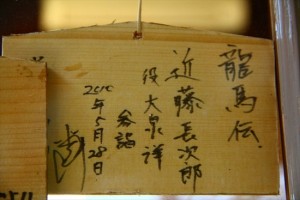 龍馬伝
近藤長次郎
役大泉洋
参詣
2010年5月28日